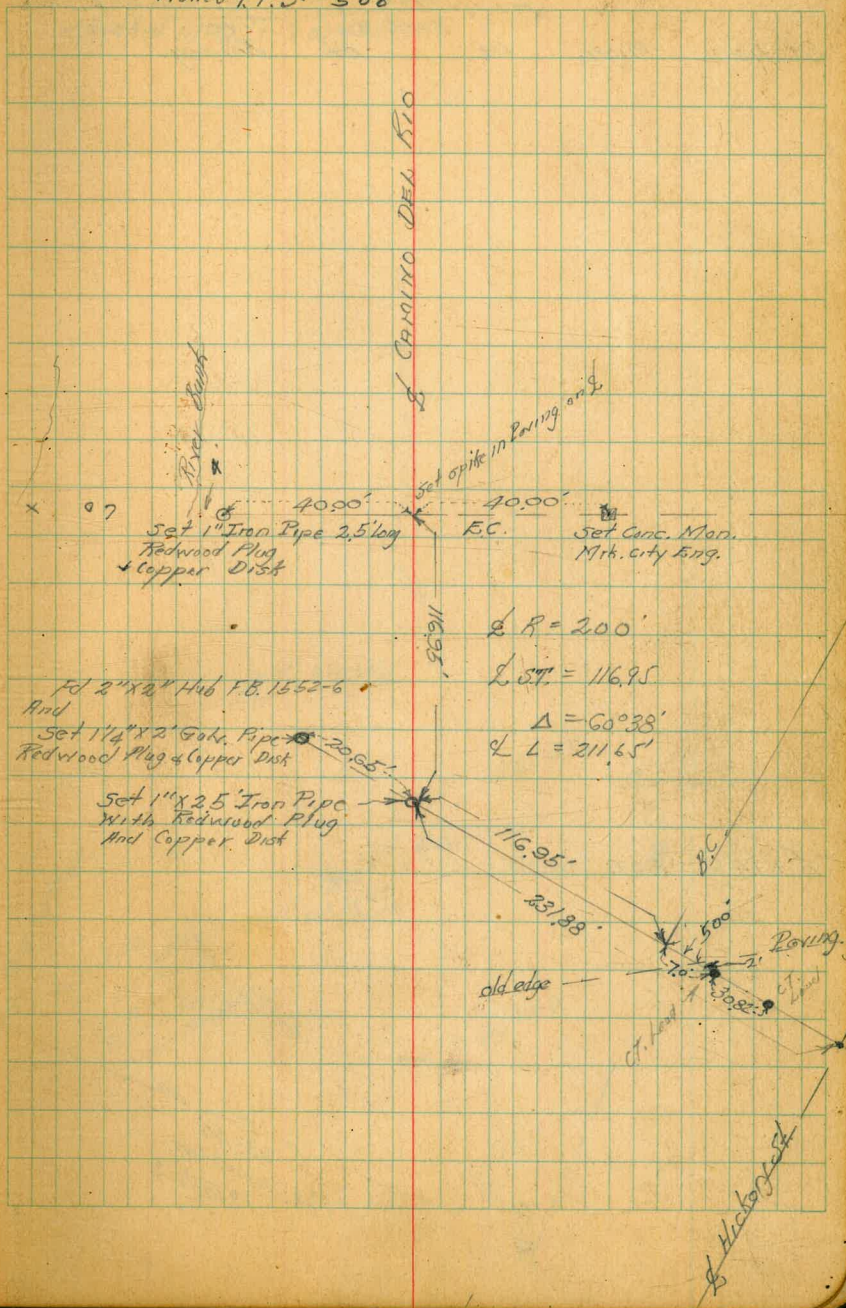 ℄ CAMINO DEL RIO
River Bank
Set spike in Paving on ℄
40.00'
40.00'
Set 1" Iron Pipe 2.5' Long
Redwood Plug
Copper Disk
E.C.
Set Conc. Mon.
Mrk. City Eng.
116.95'
℄ R = 200'
℄ S.T. = 116.95
Δ = 60°38'
℄ L = 211.65'
Fd 2"X2" Hub F.B. 1552-6
And
Set 1¼"X2' Galv. Pipe
Redwood Plug & Copper Disk
20.65'
Set 1"X2.5' Iron Pipe
With Redwood Plug
And Copper Disk
116.95'
231.88
B.C.
5.00'
Paving.
7.0'
2'
old edge
30.82
CT. Lead
CT. Lead
℄ Hickory St